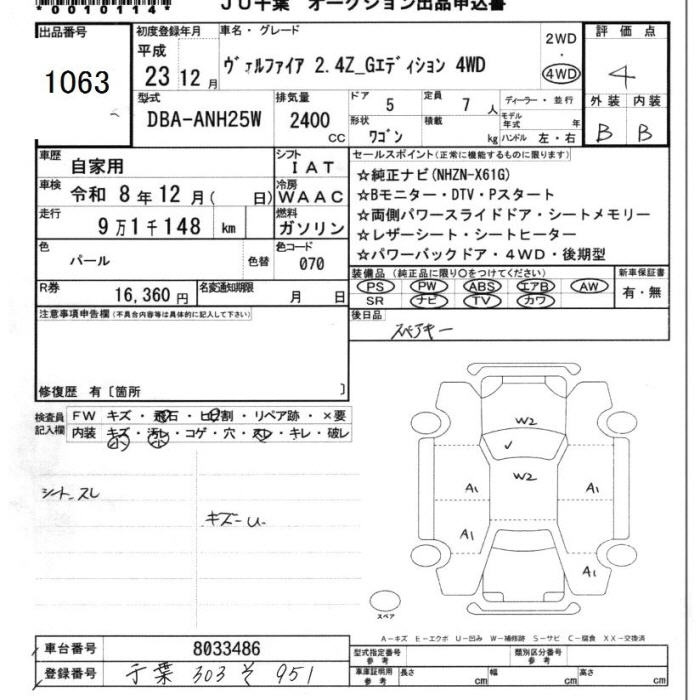 *0010114*
JU千葉 オークション出品申込書
出品番号
1063
初度登録年月
平成
23 12月
車名・グレード
ヴェルファイア 2.4Z_Gエディション 4WD
2WD
・
4WD
評価点
4
外装 内装
B B
型式
DBA-ANH25W
排気量
2400
CC
ドア 5
定員 7 人
形状 ワゴン
積載 kg
ディーラー・並行
モデル年式 年
ハンドル 左・右
車歴 自家用
シフト IAT
車検 令和 8年12月( 日)
冷房 WAAC
走行 9万1千148 km
燃料 ガソリン
色 パール 色替
色コード 070
R券 16,360円
名変通知期限 月 日
セールスポイント(正常に機能するものに限ります)
☆純正ナビ(NHZN-X61G)
☆Bモニター・DTV・Pスタート
☆両側パワースライドドア・シートメモリー
☆レザーシート・シートヒーター
☆パワーバックドア・4WD・後期型
装備品 (純正品に限り○をつけてください)
PS PW ABS エアB AW
SR ナビ TV カワ
新車保証書
有・無
後日品
スペアキー
注意事項申告欄(不具合内容等は具体的に記入して下さい)
修復歴 有〔箇所 〕
検査員記入欄
FW キズ・飛石・ヒビ割・リペア跡・×要
内装 キズ・汚レ・コゲ・穴・スレ・キレ・破レ
シート スレ
キズーU
W2
W2
A1
A1
A1
A1
A1
スペア
A-キズ E-エクボ U-凹み W-補修跡 S-サビ C-腐食 XX-交換済
車台番号 8033486
登録番号 千葉 303 そ 951
型式指定番号 参考
類別区分番号 参考
車庫証明用 参考
長さ cm
幅 cm
高さ cm